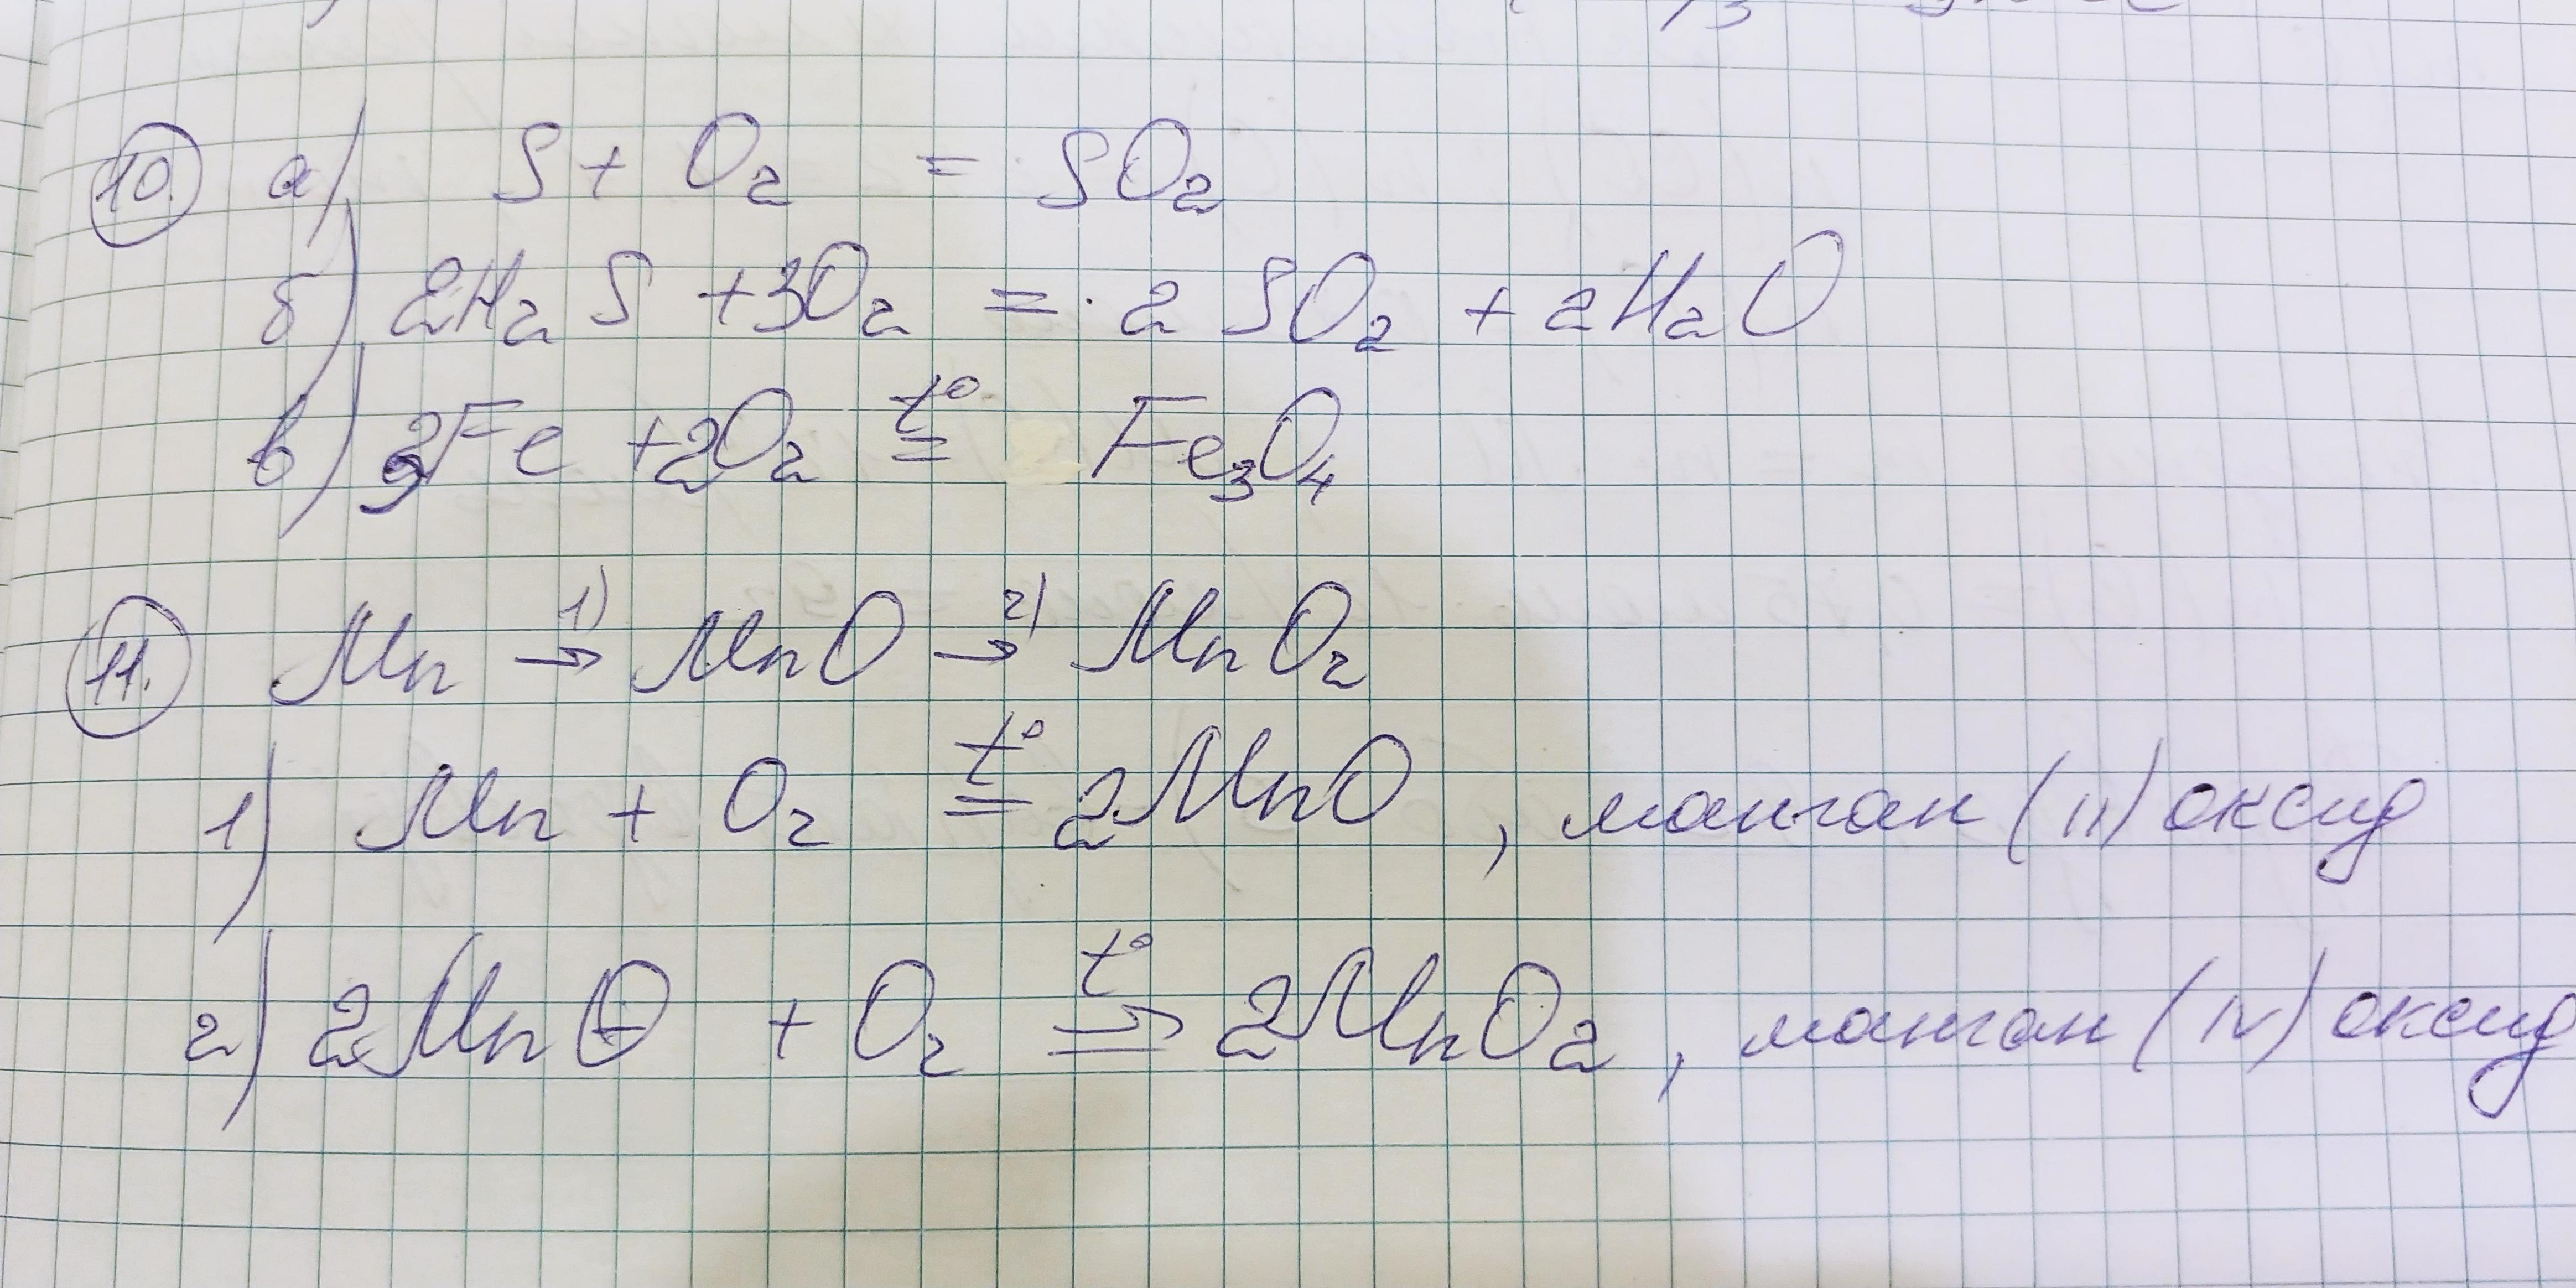 10. а) S + O₂ = SO₂
б) 2H₂S + 3O₂ = 2SO₂ + 2H₂O
в) 3Fe + 2O₂ t° = Fe₃O₄
11. Mn 1) → MnO 2) → MnO₂
1) Mn + O₂ t° = 2MnO , манган (II) оксид
2) 2MnO + O₂ t° ⇒ 2MnO₂ , манган (IV) оксид